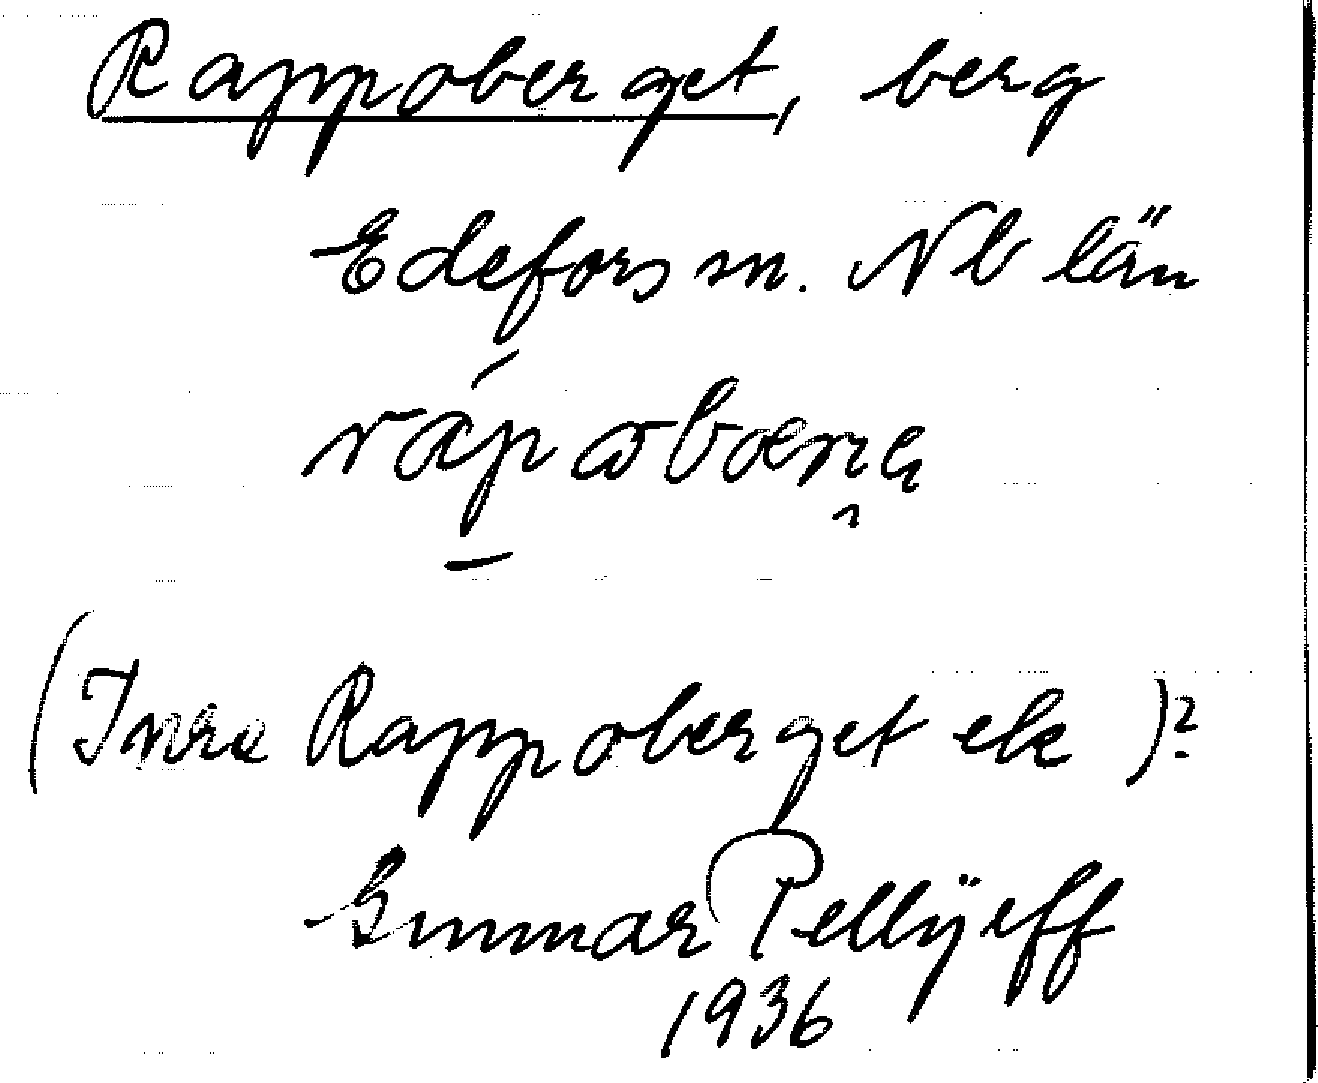 Rappoberget, berg
Edefors sn. Nb län
(Inre Rappoberget ek)?
Gunnar Pellijeff
1936